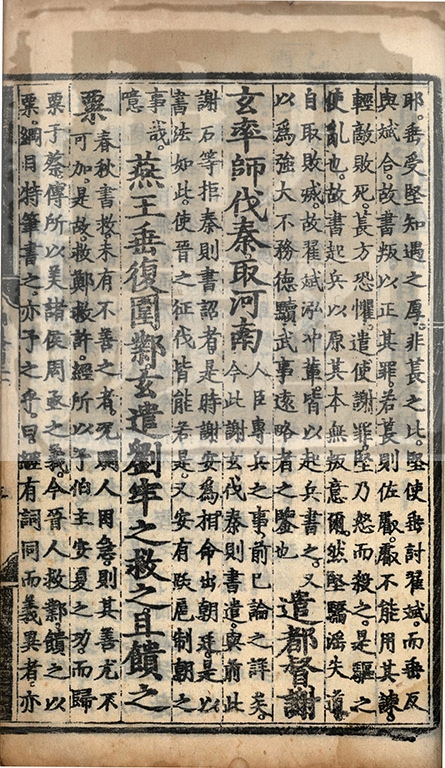 耶垂受堅知遇之厚非萇之比堅使垂討翟斌而垂反
與斌合故書叛以正其罪若萇則佐叡叡不能用其諫
輕敵敗死萇方恐懼遣使謝罪堅乃怒而殺之是驅之
使亂也故書起兵以原其本無叛意爾然堅驕淫失道
自取敗㓕故翟斌泓冲輩皆以起兵書之又
以爲強大不務德黷武事遠略者之鑒也
遣都督謝
玄率師伐秦取河南
人臣專兵之事前已論之詳矣
今此謝玄伐秦則書遣與前此
謝石等拒秦則書詔者是時謝安爲相命出朝廷是以
書法如此使晉之征伐皆能若是又安有跋扈制朝之
事哉
噫
燕王垂復圍鄴玄遣劉牢之救之且饋之
粟
春秋書救未有不善之者况人困急則其善尤不
可加是故救鄭救許經所以予伯主安夏之功而歸
粟于蔡傳所以美諸侯周亟之義今晉人救鄴饋之以
粟綱目特筆書之亦予之乎曰經有詞同而義異者亦